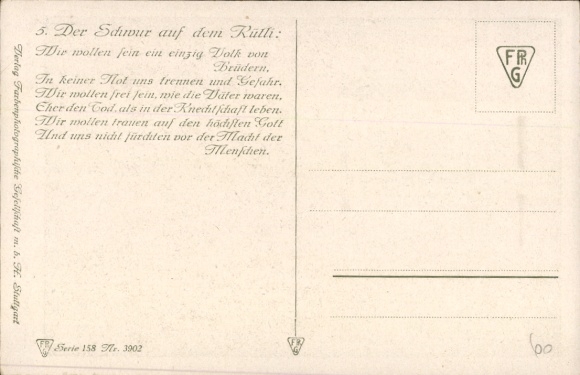 5. Der Schwur auf dem Rütli:
Wir wollen sein ein einzig Volk von
Brüdern,
In keiner Not uns trennen und Gefahr.
Wir wollen frei sein, wie die Väter waren,
Eher den Tod, als in der Knechtschaft leben.
Wir wollen trauen auf den höchsten Gott
Und uns nicht fürchten vor der Macht der
Menschen.
Verlag Farbenphotographische Gesellschaft m. b. H. Stuttgart
FPhG
FPhG Serie 158 Nr. 3902
FPhG
60